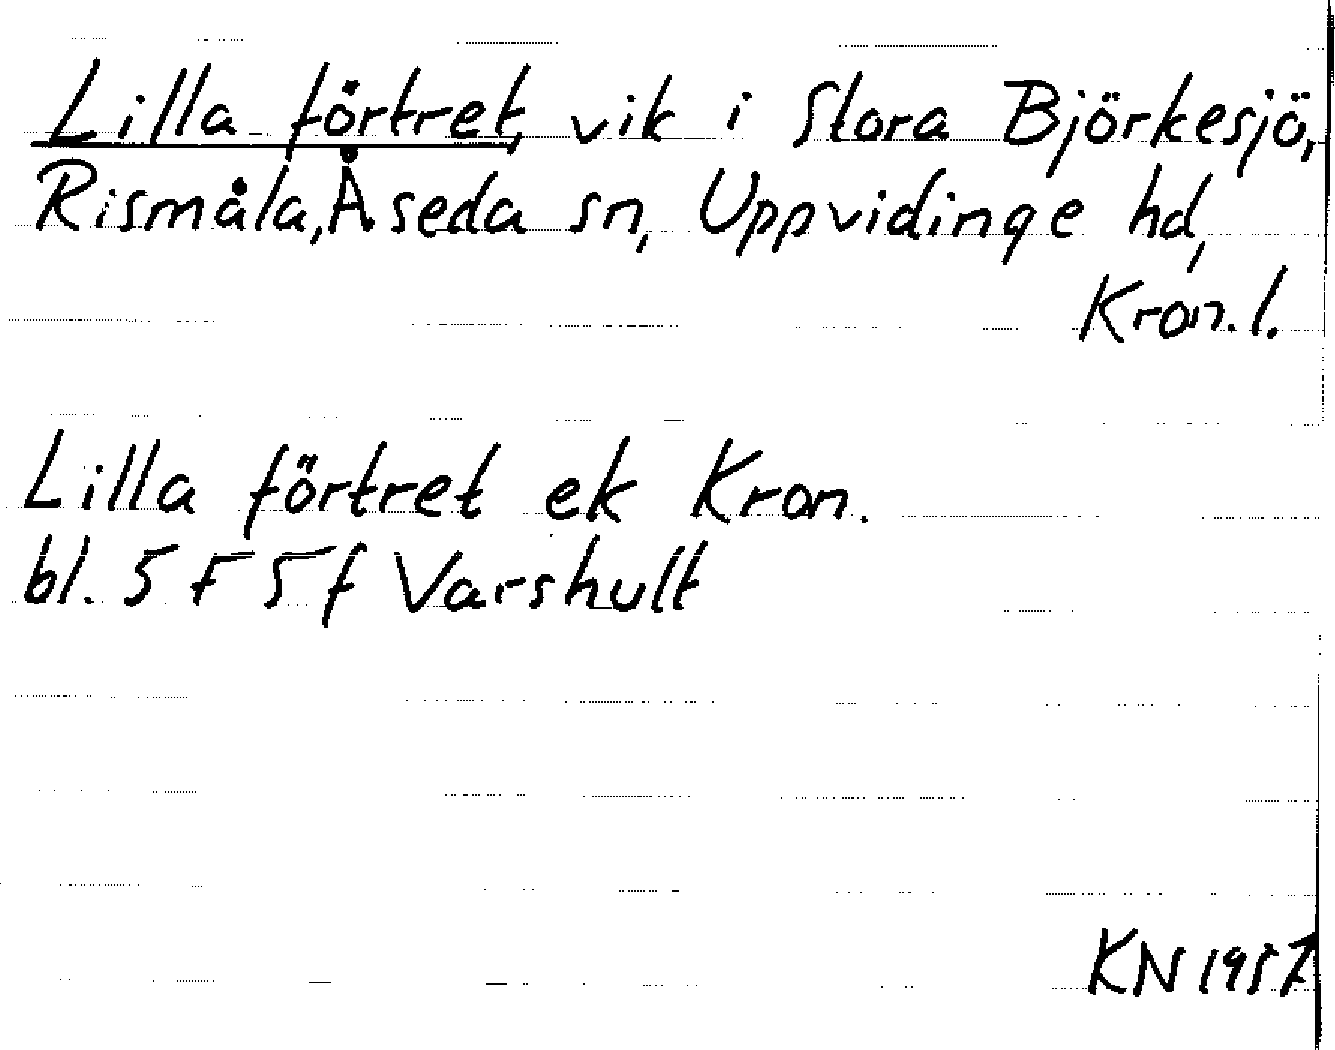 Lilla förtret, vik i Stora Björkesjö,
Rismåla, Åseda sn, Uppvidinge hd,
Kron. l.
Lilla förtret ek Kron.
bl. 5 F 5 f Varshult
KN 1957